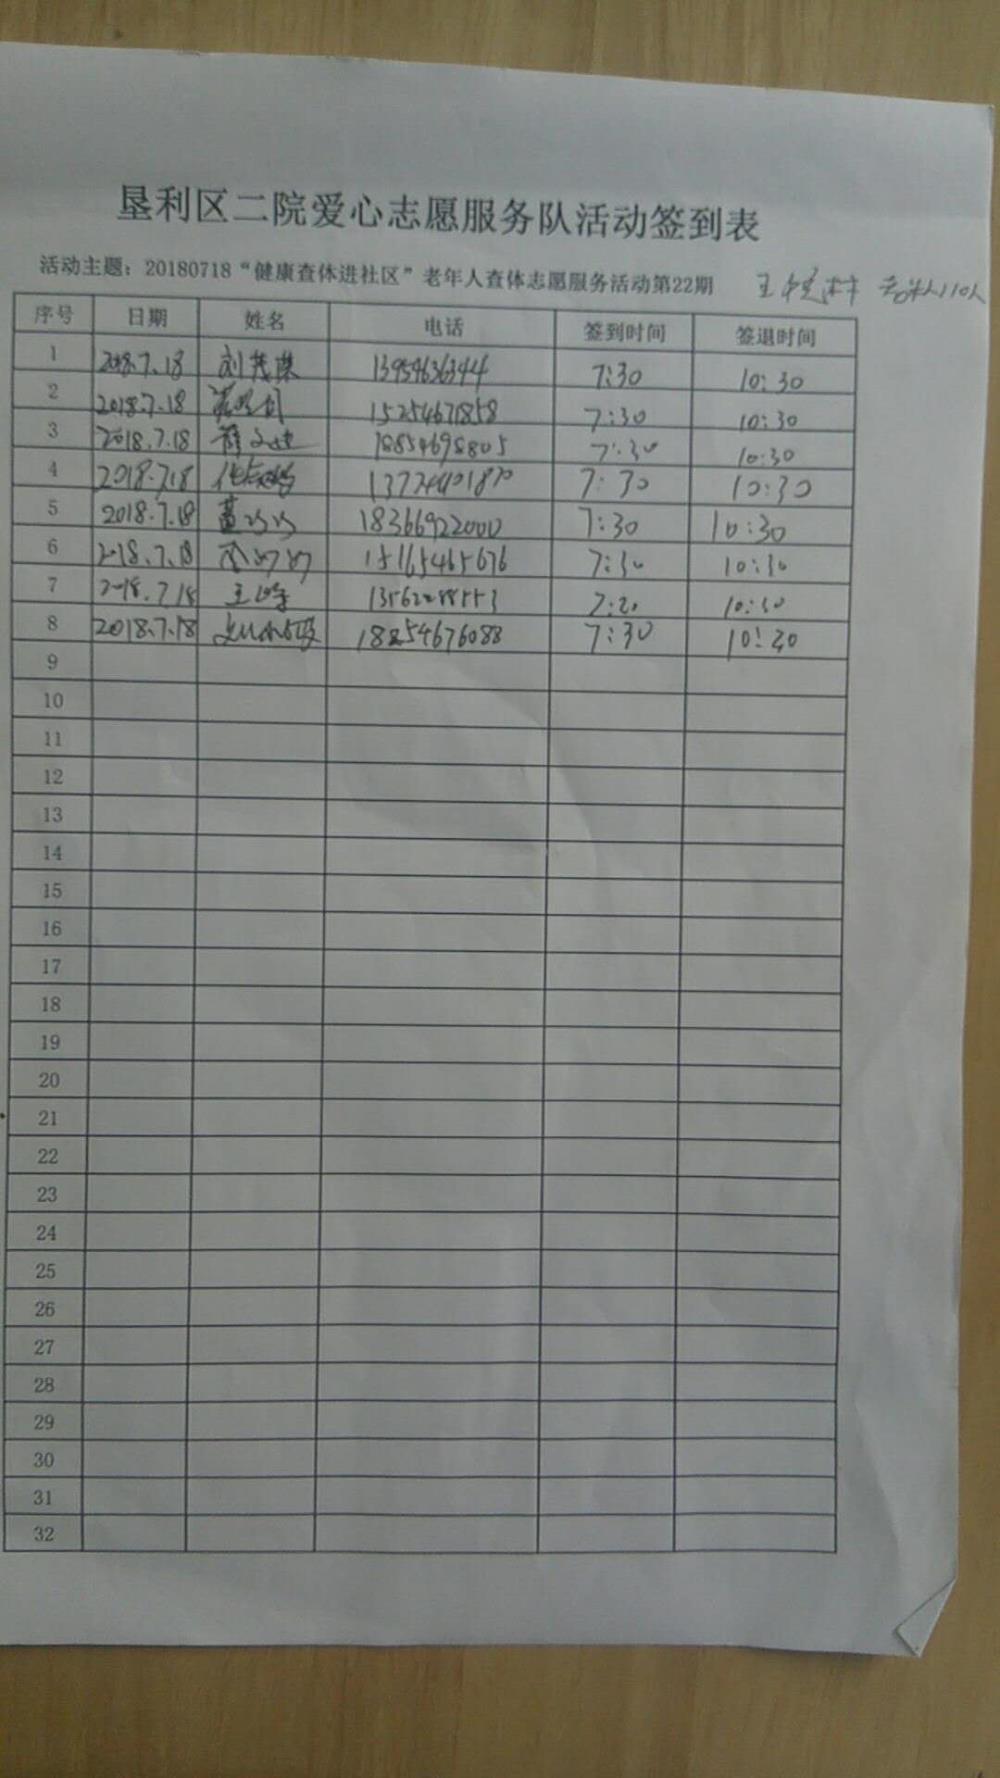 垦利区二院爱心志愿服务队活动签到表
活动主题：20180718“健康查体进社区”老年人查体志愿服务活动第22期 老年人110人
序号 日期 姓名 电话 签到时间 签退时间
1 2018.7.18 刘茂琪 13954636344 7:30 10:30
2 2018.7.18 15254671858 7:30 10:30
3 2018.7.18 18854698805 7:30 10:30
4 2018.7.18 7:30 10:30
5 2018.7.18 18366922000 7:30 10:30
6 2018.7.18 15165465676 7:30 10:30
7 2018.7.18 10:30
8 2018.7.18 18254676088 7:30 10:30
9
10
11
12
13
14
15
16
17
18
19
20
21
22
23
24
25
26
27
28
29
30
31
32